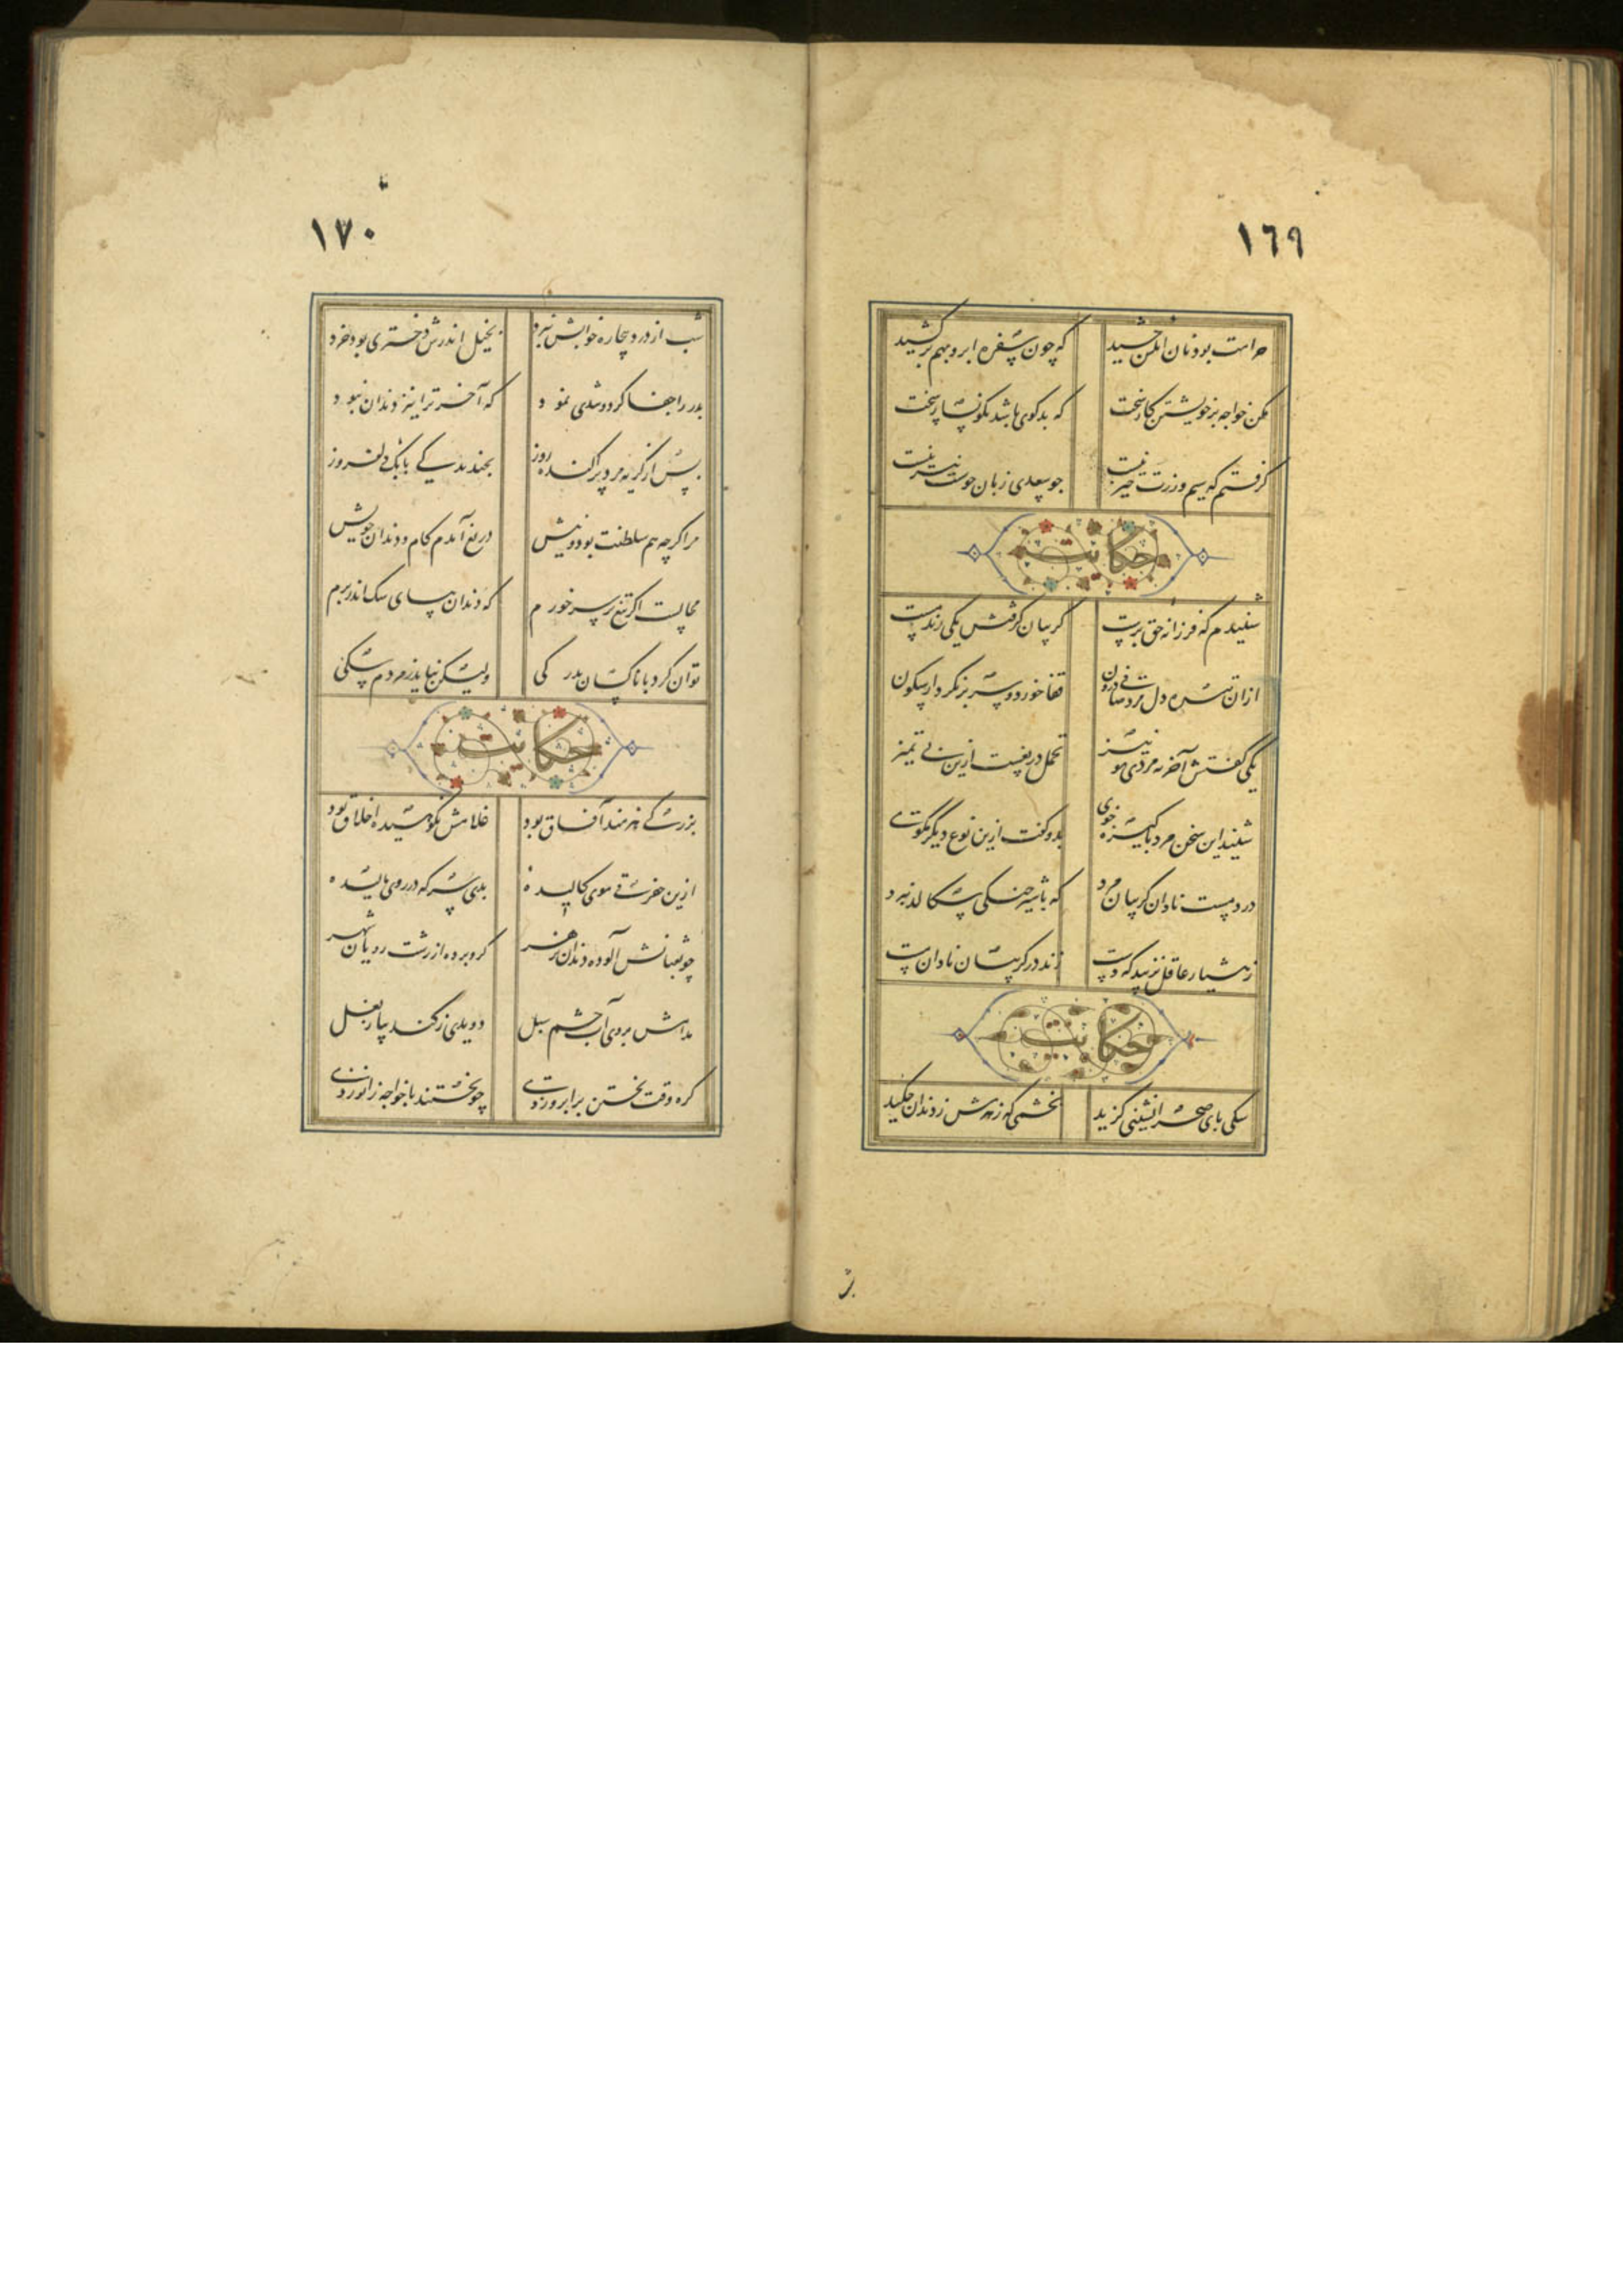 ١٦٩
حرامت بود نان آنکس چشید که چون سفره ابرو بهم برکشید
مکن خواجه بر خویشتن کار سخت که بدکوی باشد نکونسار بخت
کرفتم که سیم و زرت چیز نیست چو سعدی زبان خوشت نیز نیست
حکایت
شنیدم که فرزانه حق پرست کریبان کرفتش یکی رند مست
ازان تیره دل مرد صافی درون قفا خورد و سر بر نکرد از سکون
یکی کفتش آخر نه مردی تو نیز تحمل دریغست ازین بی تمیز
شنید این سخن مرد پاکیزه خوی بدو کفت ازین نوع دیگر مکوی
درد مست نادان کریبان مرد که با شیر جنکی سکالد نبرد
ز هشیار عاقل نزیبد که دست زند در کریبان نادان مست
حکایت
سکی پای صحرانشینی کزید بخشمی که زهرش ز دندان چکید
١٧٠
شب از درد بیچاره خوابش نبرد بخیل اندرش دختری بود خرد
پدر را جفا کرد و تندی نمود که آخر ترا نیز دندان نبود
پس از کریه مرد پراکنده روز بخندید کای بابک دلفروز
مرا کرچه هم سلطنت بود و نیش دریغ آمدم کام و دندان خویش
محالست اکر تیغ بر سر خورم که دندان بپای سک اندر برم
توان کرد با ناکسان بدرکی ولیکن نیاید ز مردم سکی
حکایت
بزرکی هنرمند آفاق بود غلامش نکوهیده اخلاق بود
ازین خفرقی موی کالیده بدی سرکه در روی مالیده
چو ثعبانش آلوده دندان بزهر کرو برده از زشت رویان شهر
مدامش بروی آب چشم سبل دویدی ز کند پیاز بغل
کره وقت پختن بر ابرو زدی چو پختند با خواجه زانو زدی